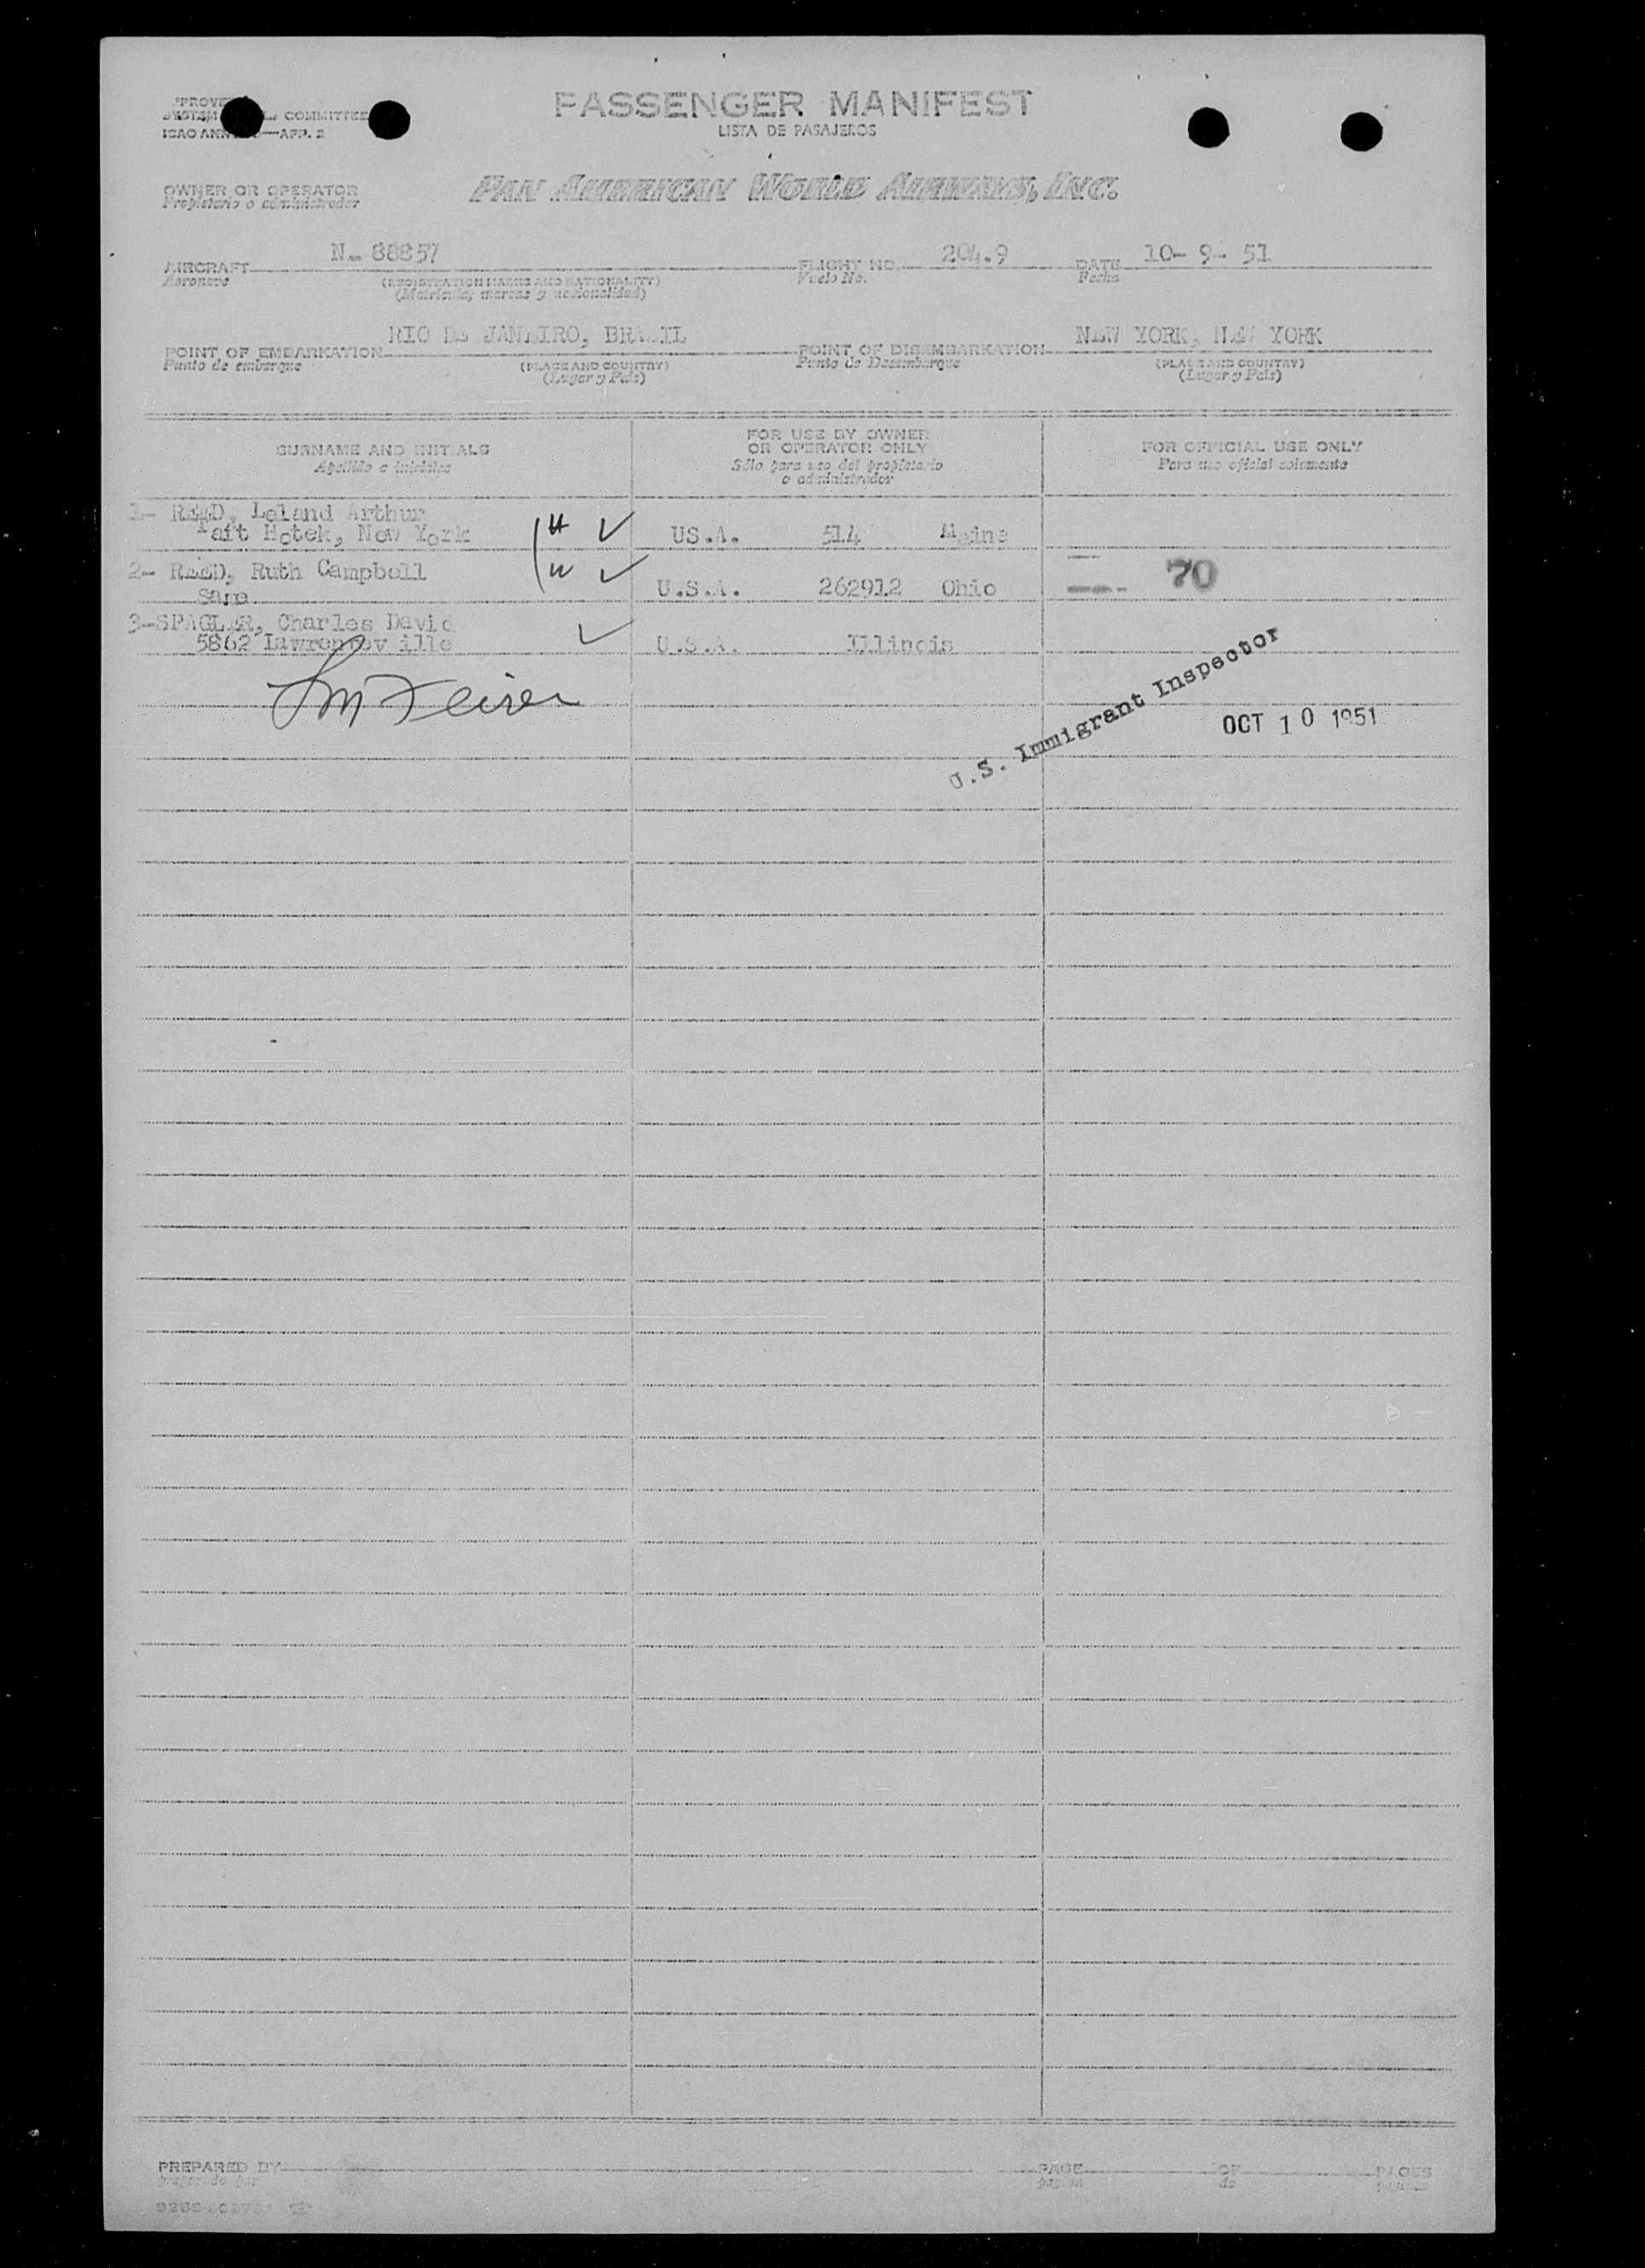 COMMITTEE
ICAO ANN —APP. 2
PASSENGER MANIFEST
LISTA DE PASAJEROS
OWNER OR OPERATOR
Propietario o administrador
PAN AMERICAN WORLD AIRWAYS, INC.
AIRCRAFT N- 88857 FLIGHT NO. 204.9 DATE 10- 9- 51
Aeronave (REGISTRATION MARKS AND NATIONALITY) Vuelo No. Fecha
(Matricula, marcas y nacionalidad)
POINT OF EMBARKATION RIO DE JANEIRO, BRAZIL POINT OF DISEMBARKATION NEW YORK, NEW YORK
Punto de embarque (PLACE AND COUNTRY) Punto de Desembarque (PLACE AND COUNTRY)
(Lugar y País) (Lugar y País)
SURNAME AND INITIALS FOR USE BY OWNER OR OPERATOR ONLY FOR OFFICIAL USE ONLY
Apellido e iniciales Sólo para uso del propietario o administrador Para uso oficial solamente
1- REED, Leland Arthur
Taft Hotek, New York H ✓ US.A. 514 Maine
2- REED, Ruth Campbell W ✓
Same U.S.A. 262912 Ohio 70
3-SPAGLER, Charles David
5862 Lawrencev ille ✓ U.S.A. Illinois
U.S. Immigrant Inspector
OCT 10 1951
PREPARED BY PAGE OF PAGES
preparado por pagina de